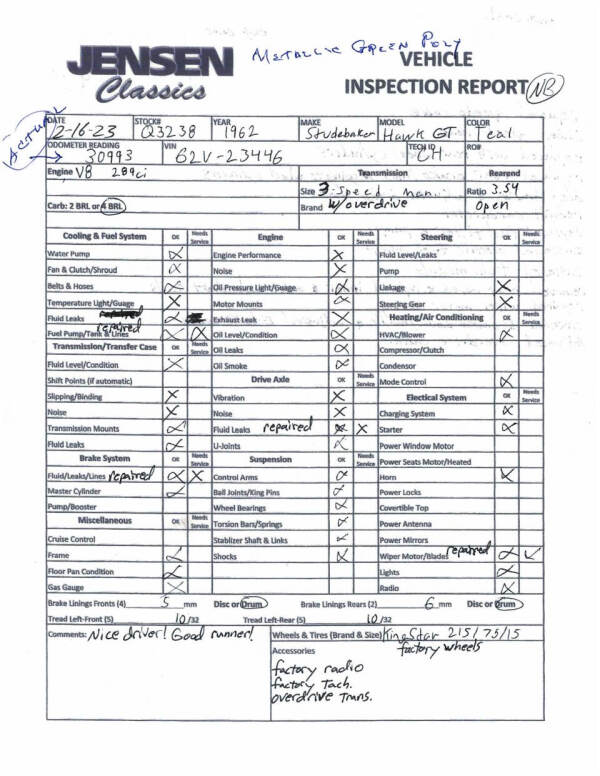 METALLIC GREEN POLY
JENSEN VEHICLE
Classics INSPECTION REPORT NB
ACTUAL
DATE STOCK# YEAR MAKE MODEL COLOR
2-16-23 Q3238 1962 Studebaker Hawk GT Teal
ODOMETER READING VIN TECH ID RO#
30993 62V-23446 CH
Engine V8 289ci Transmission Rearend
Size 3-Speed manual Ratio 3.54
Carb: 2 BRL or 4 BRL Brand w/overdrive open
Cooling & Fuel System OK Needs Service Engine OK Needs Service Steering OK Needs Service
Water Pump X Engine Performance X Fluid Level/Leaks
Fan & Clutch/Shroud X Noise X Pump
Belts & Hoses X Oil Pressure Light/Guage X Linkage X
Temperature Light/Guage X Motor Mounts X Steering Gear X
Fluid Leaks repaired X Exhaust Leak X Heating/Air Conditioning OK Needs Service
Fuel Pump/Tank & Lines repaired X X Oil Level/Condition X HVAC/Blower X
Transmission/Transfer Case OK Needs Service Oil Leaks X Compressor/Clutch
Fluid Level/Condition X Oil Smoke X Condensor
Shift Points (if automatic) Drive Axle OK Needs Service Mode Control X
Slipping/Binding X Vibration X Electical System OK Needs Service
Noise X Noise X Charging System X
Transmission Mounts X Fluid Leaks repaired X X Starter X
Fluid Leaks X U-Joints X Power Window Motor
Brake System OK Needs Service Suspension OK Needs Service Power Seats Motor/Heated
Fluid/Leaks/Lines repaired X X Control Arms X Horn X
Master Cylinder X Ball Joints/King Pins X Power Locks
Pump/Booster Wheel Bearings X Covertible Top
Miscellaneous OK Needs Service Torsion Bars/Springs X Power Antenna
Cruise Control Stablizer Shaft & Links X Power Mirrors
Frame X Shocks X Wiper Motor/Blades repaired X ✓
Floor Pan Condition X Lights X
Gas Gauge X Radio X
Brake Linings Fronts (4) 5 mm Disc or Drum Brake Linings Rears (2) 6 mm Disc or Drum
Tread Left-Front (5) 10/32 Tread Left-Rear (5) 10/32
Comments: Nice driver! Good runner! Wheels & Tires (Brand & Size) KingStar 215/75/15
factory wheels
Accessories
factory radio
factory Tach.
overdrive trans.